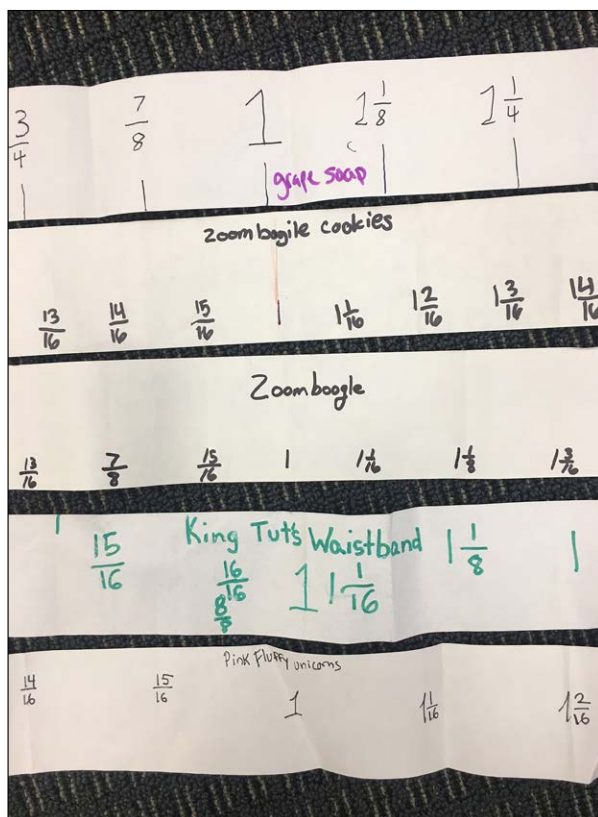 3/4 7/8 1 1 1/8 1 1/4
grape soap
zoombogile cookies
13/16 14/16 15/16 1 1 1/16 1 2/16 1 3/16 14/16
Zoomboogle
13/16 7/8 15/16 1 1 1/16 1 1/8 1 3/16
King Tut's Waistband
15/16 16/16 8/8 1 1 1/16 1 1/8 1
Pink Fluffy unicorns
14/16 15/16 1 1 1/16 1 2/16